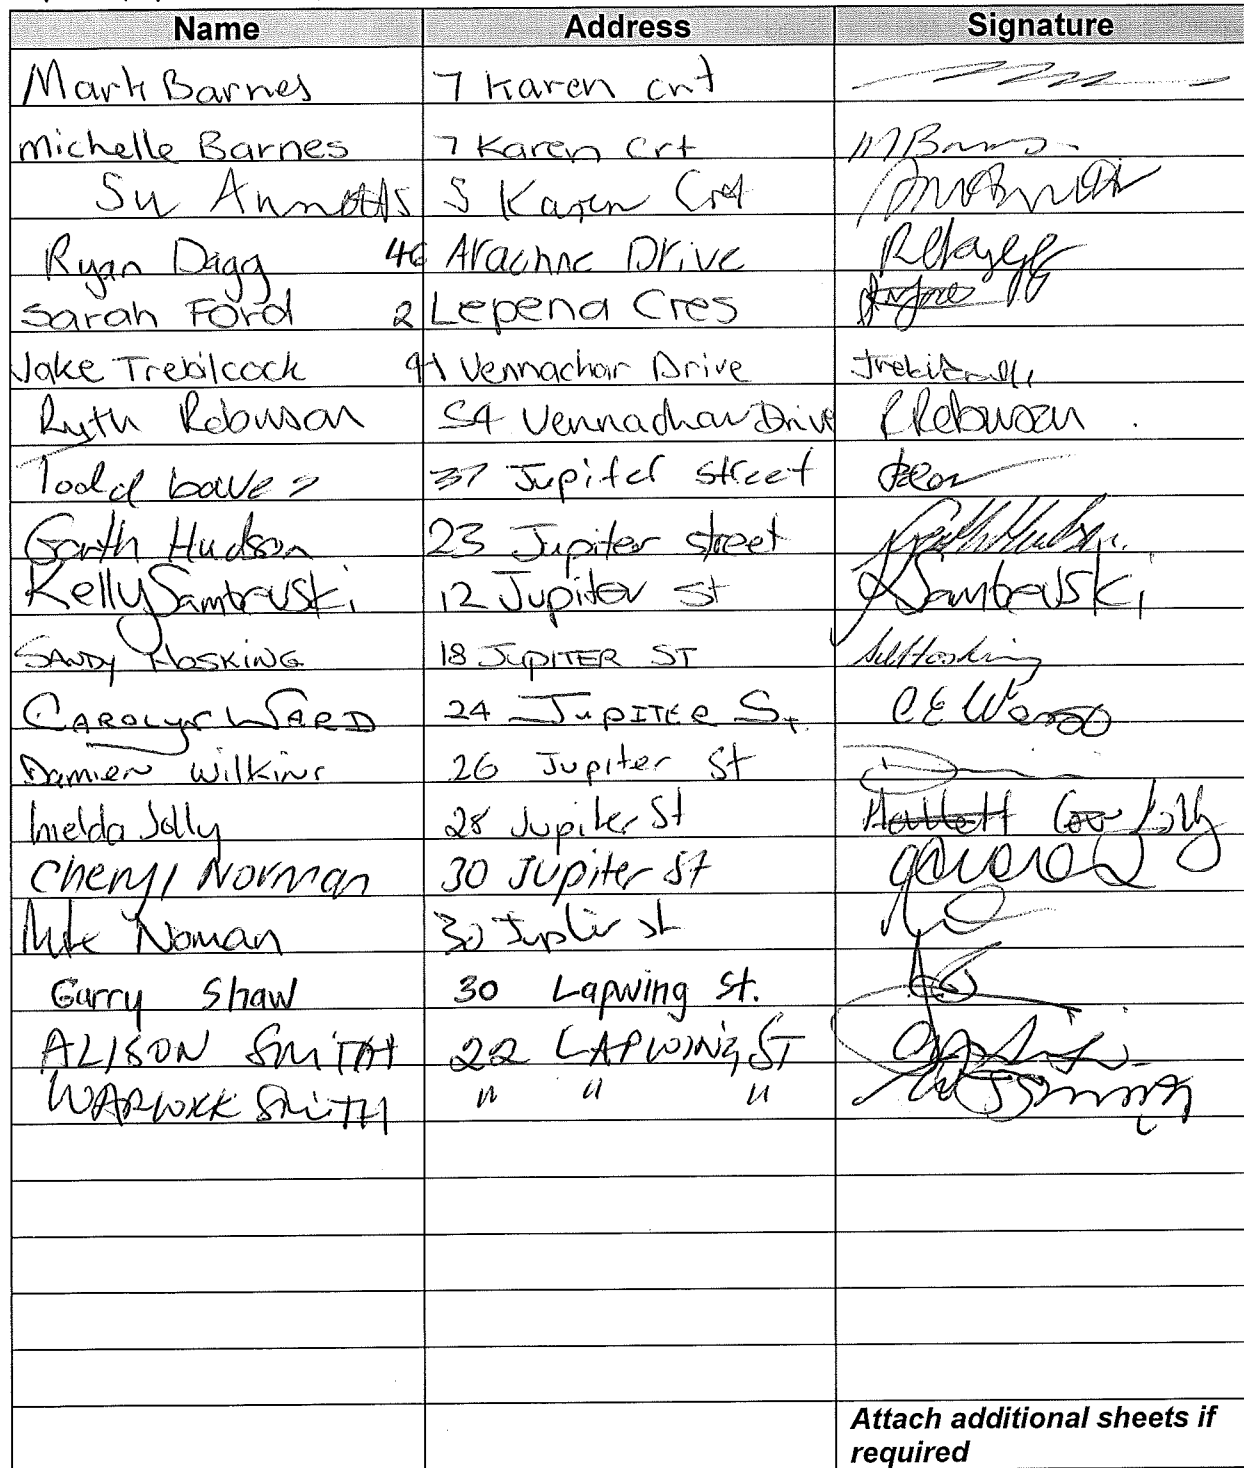 Name Address Signature
Mark Barnes 7 Karen cnt
Michelle Barnes 7 Karen Crt MBarnes
Su Annotts 5 Karen Crt
Ryan Dagg 46 Arachne Drive RDagg
Sarah Ford 2 Lepena Cres
Jake Trebilcock 91 Vennachar Drive
Ruth Robinson 54 Vennachar Drive RRobinson
Todd 37 Jupiter street
Garth Hudson 23 Jupiter street Garth Hudson
Kelly Sambevski 12 Jupiter st KSambevski
SANDY HOSKING 18 JUPITER ST Hosking
CAROLYN WARD 24 JUPITER St. CE Ward
Damien Wilkins 26 Jupiter St
Imelda Jolly 28 Jupiter St Jolly
Cheryl Norman 30 Jupiter St
Mike Noman 30 st
Garry Shaw 30 Lapwing St.
ALISON SMITH 22 LAPWING ST
WARWICK SMITH " " "
Attach additional sheets if
required